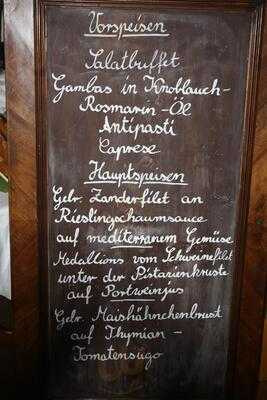 Vorspeisen
Salatbuffet
Gambas in Knoblauch-
Rosmarin-Öl
Antipasti
Caprese
Hauptspeisen
Gebr. Zanderfilet an
Rieslingschaumsauce
auf mediterranem Gemüse
Medaillons vom Schweinefilet
unter der Pistazienkruste
auf Portweinjus
Gebr. Maishähnchenbrust
auf Thymian-
Tomatensugo